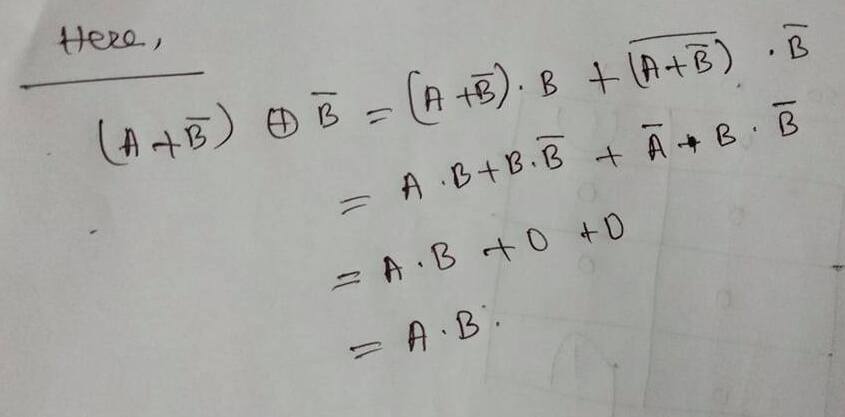 Here,
(A+B̅) ⊕ B̅ = (A+B̅)·B + \overline{(A+B̅)}·B̅
= A·B+B·B̅ + A̅·B·B̅
= A·B + 0 + 0
= A·B.